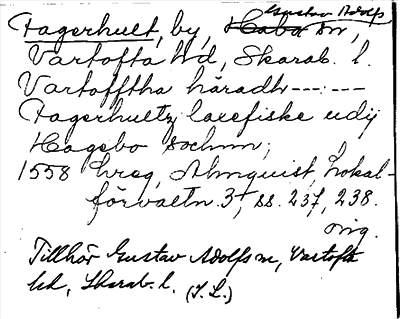 Gustav Adolfs
Fagerhult, by, Habo sn,
Vartofta hd, Skarab. l.
Vartofftha häradh------
Fagerhultz laxefiske udij
Hagebo sochnn;
1558 hreg, Almquist, Lokal-
förvaltn. 3, ss. 237, 238.
orig.
Tillhör Gustav Adolfs sn, Vartofta
hd, Skarab. l. (I. L.)